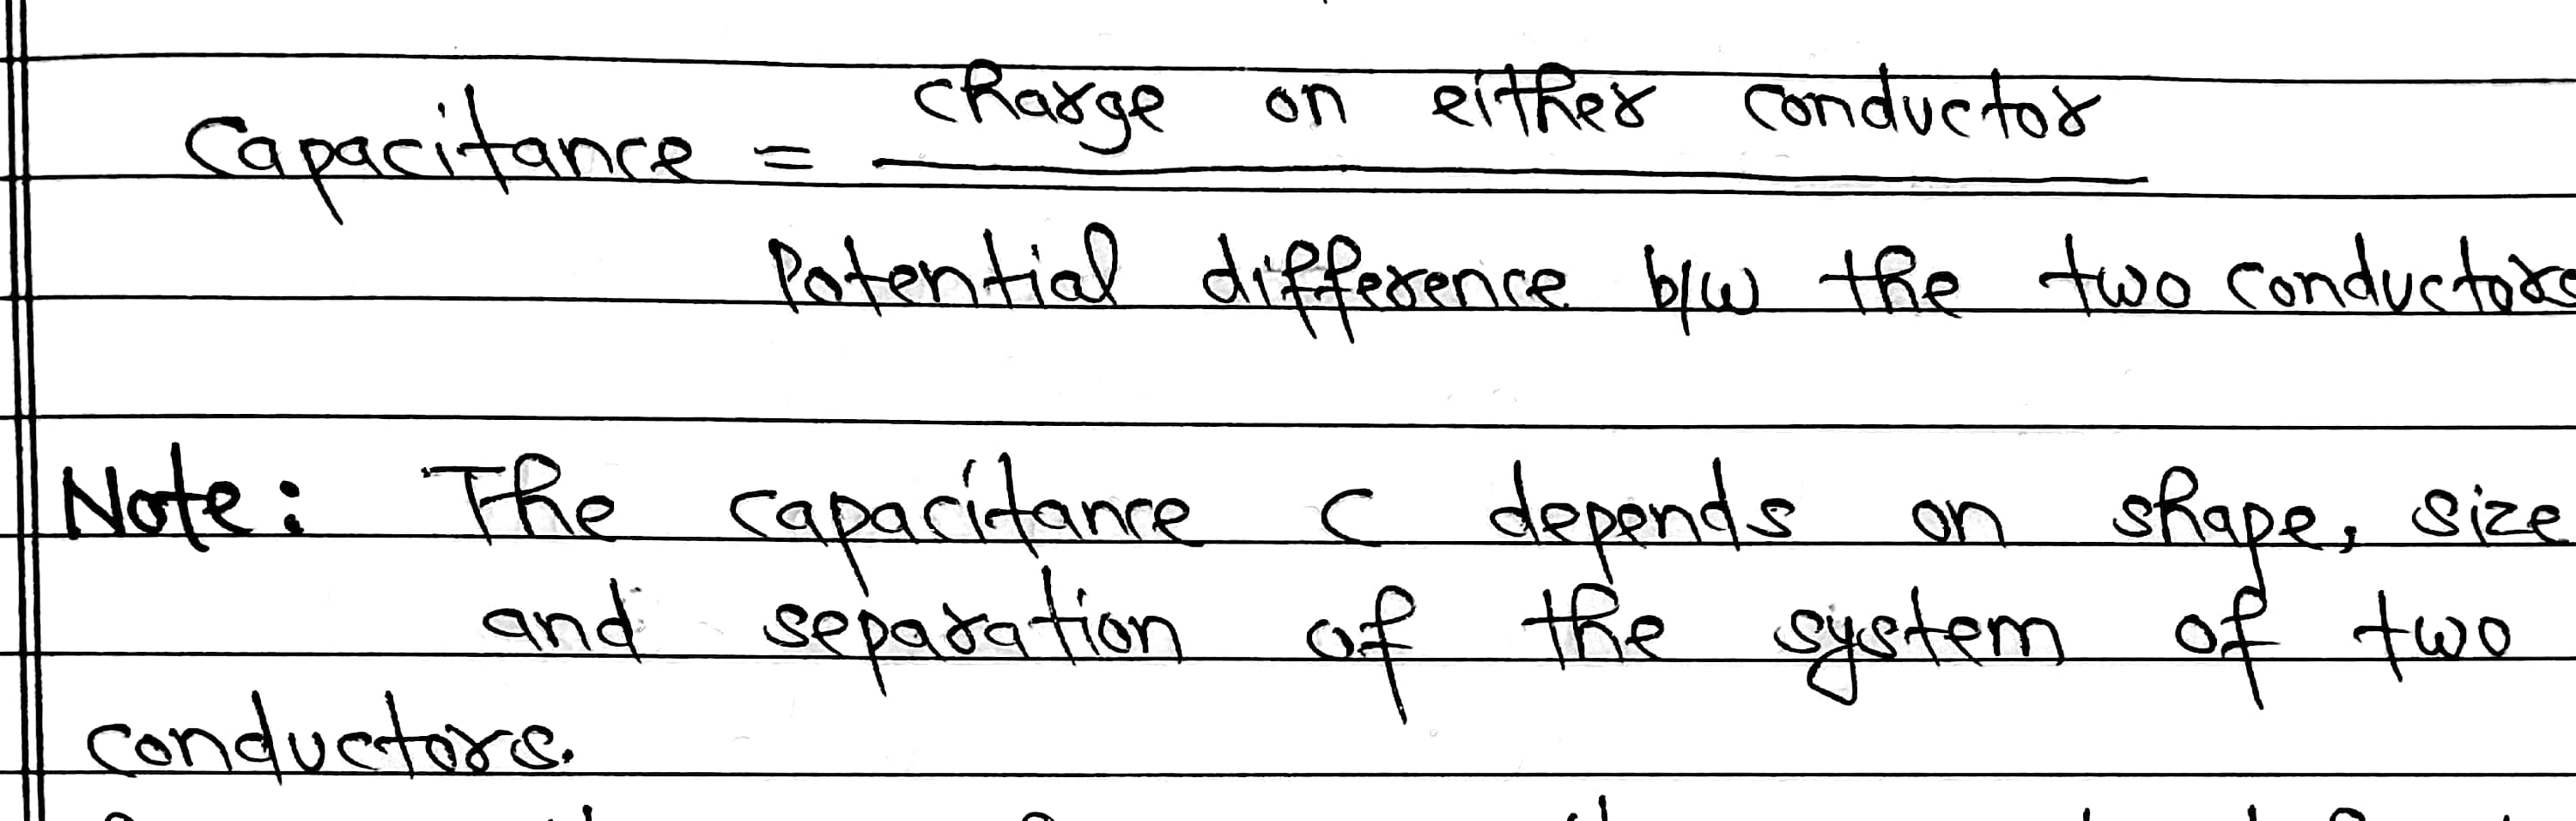 Capacitance = charge on either conductor
Potential difference b/w the two conductors
Note: The capacitance C depends on shape, size
and separation of the system of two
conductors.